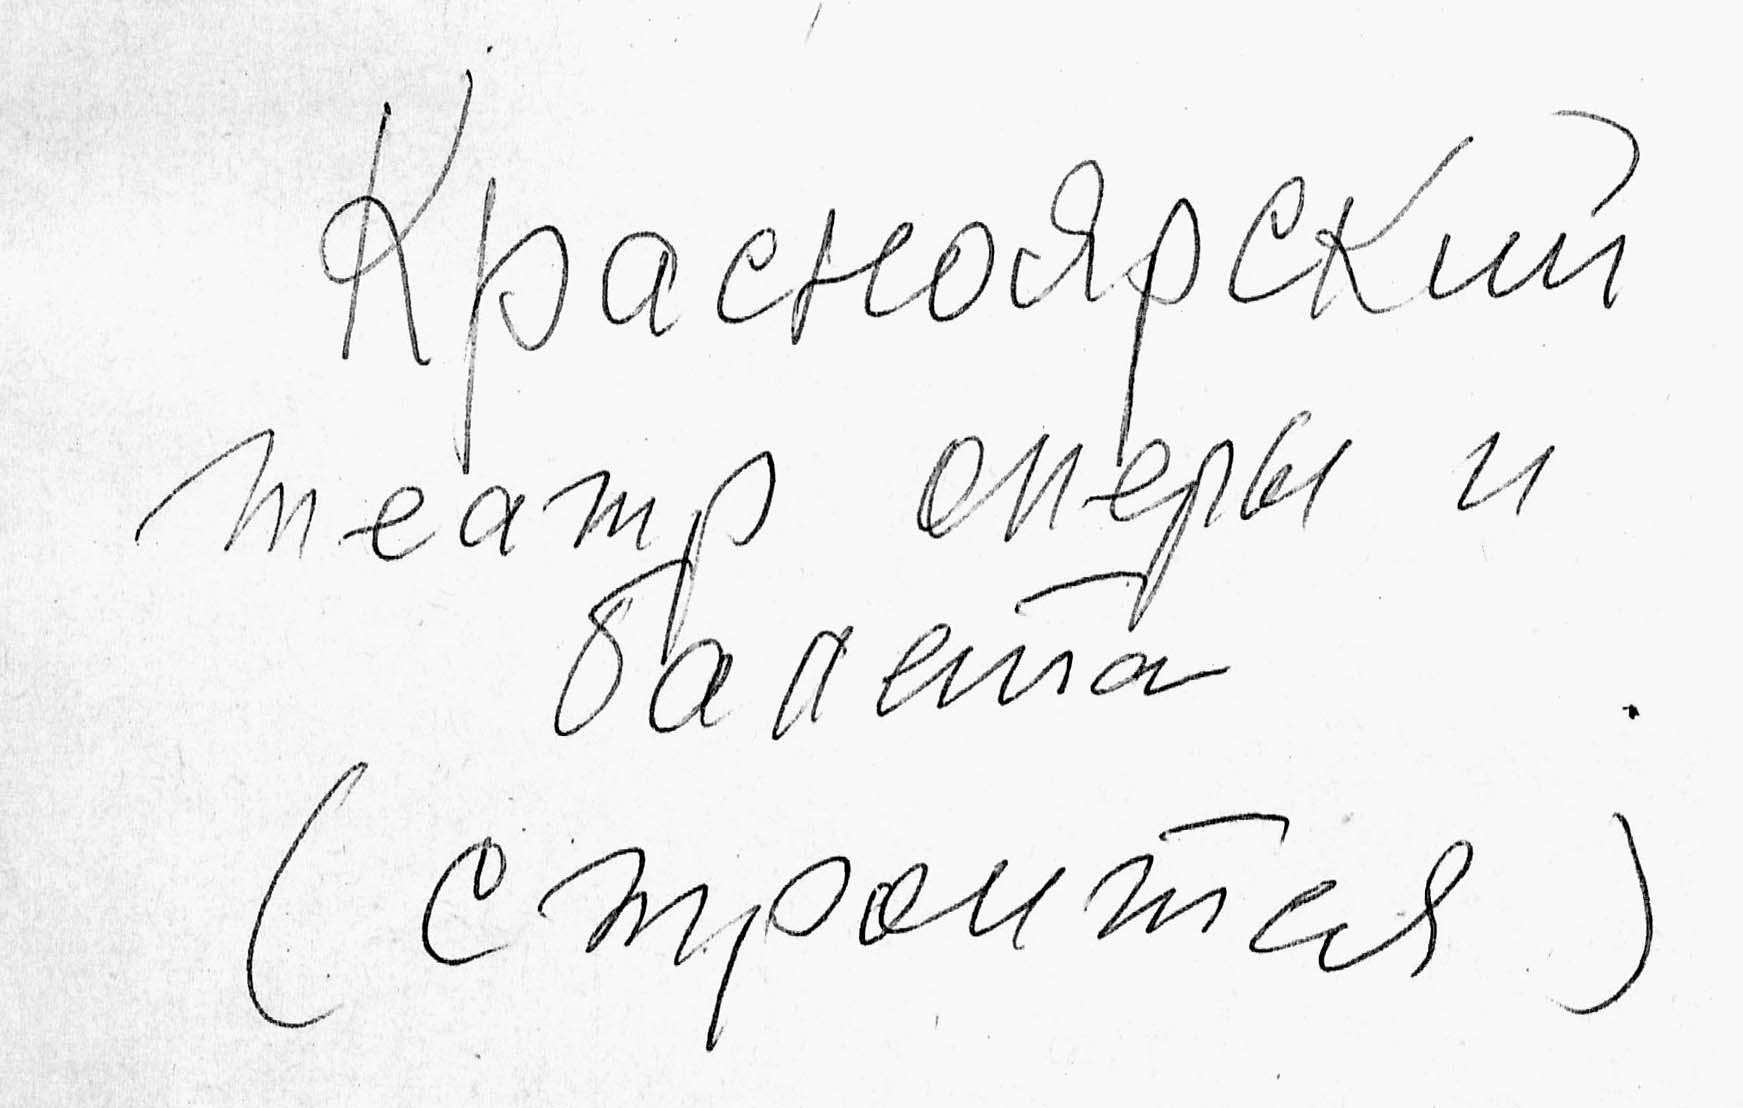 Красноярский
театр оперы и
балета
(строится)